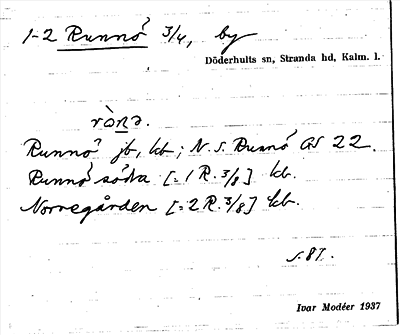 1-2 Runnö 3/4, by
Döderhults sn, Stranda hd, Kalm. l.
rònə.
Runnö jb, kb; N. S. Runnö GS 22.
Runnö södra [=1 R. 3/8] kb.
Norregården [=2 R. 3/8] kb.
s. 87.
Ivar Modéer 1937